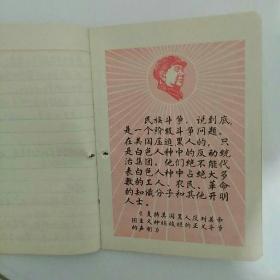 民族斗争，说到底，
是一个阶级斗争问题。
在美国压迫黑人的，只
是白色人种中的反动统
治集团。他们绝不能代
表白色人种中占绝大多
数的工人、农民、革命
的知识分子和其他开明
人士。
《支持美国黑人反对美帝
国主义种族歧视的正义斗争
的声明》